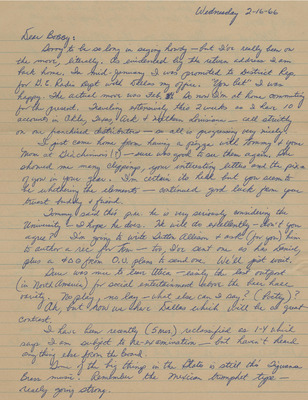 Wednesday 2-16-66
Dear Bobby:
Sorry to be so long in saying howdy - but I've really been on
the move, literally. As evidenced by the return address I am
back home. In mid-January I was promoted to District Rep
for D.C. Radio Dept with Dallas my office. "You bet" I was
happy. The actual move was Feb. & now I'm at home commuting
for the period. Traveling extensively this 2 weeks as I have 10
accounts in Okla, Texas, Ark & Northern Louisiana - call strictly
on our franchised distributors - so all is progressing very nicely.
I just came home from having a pizza with Tommy & your
Mom at - sure was good to see them again. She
showed me many clippings, your interesting letters and the pixes
of you in your gear. I'm certain its hell but you seem to
be weathering the elements - continued good luck from your
trust buddy & friend.
Tommy said this p.m. he is very seriously considering the
University - I hope he does. He will do excellently - don't you
agree? I'm going to write Allison & ask (for you) him
to author a letter for Tom - too, I've sent one to his Senior,
plus a 400 from O.U. plans to send one. We'll just wait.
Dave was nice to leave - easily the last outpost
(in North America) for social entertainment above the bare base
variety. No play, no lay - what else can I say? (Poetry?)
Ah, but now we have Dallas which will be a great
contrast.
I have been recently (5 mos) reclassified as 1-Y which
says I am subject to re-examination - but haven't heard
anything else from the board.
One of the big things in the State is still this Tijuana
Brass music. Remember the Mexican trumphet type -
really going strong.